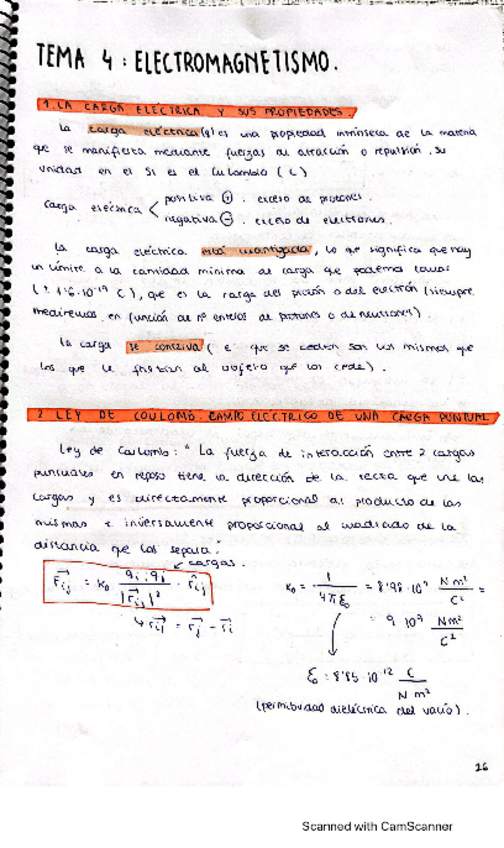 TEMA 4 : ELECTROMAGNETISMO.
1. LA CARGA ELÉCTRICA Y SUS PROPIEDADES.
La carga eléctrica (q) es una propiedad intrínseca de la materia
que se manifiesta mediante fuerzas de atracción o repulsión. Su
unidad en el SI es el Culombio (C)
carga eléctrica < positiva ⊕ : exceso de protones.
negativa ⊖ : exceso de electrones.
La carga eléctrica está cuantizada, lo que significa que hay
un límite a la cantidad mínima de carga que podemos
(± 1'6·10⁻¹⁹ C), que es la carga del protón o del electrón (siempre
mediremos en función de nº enteros de protones o de neutrones).
la carga se conserva ( e⁻ que se ceden son los mismos que
los que le al objeto que los cede).
2 LEY DE COULOMB. CAMPO ELÉCTRICO DE UNA CARGA PUNTUAL
Ley de Coulomb: " La fuerza de interacción entre 2 cargas
puntuales en reposo tiene la dirección de la recta que une las
cargas y es directamente proporcional al producto de las
mismas e inversamente proporcional al cuadrado de la
distancia que las separa."
cargas.
F⃗ij = K₀ qi·qj / |r⃗ij|² · r̂ij
K₀ = 1 / 4πξ₀ = 8'98·10⁹ N m² / C² =
↳ r⃗ij = r⃗j − r⃗i
= 9 10⁹ N m² / C²
ξ₀ = 8'85·10⁻¹² C / N m²
(permitividad dieléctrica del vacío).
26
Scanned with CamScanner